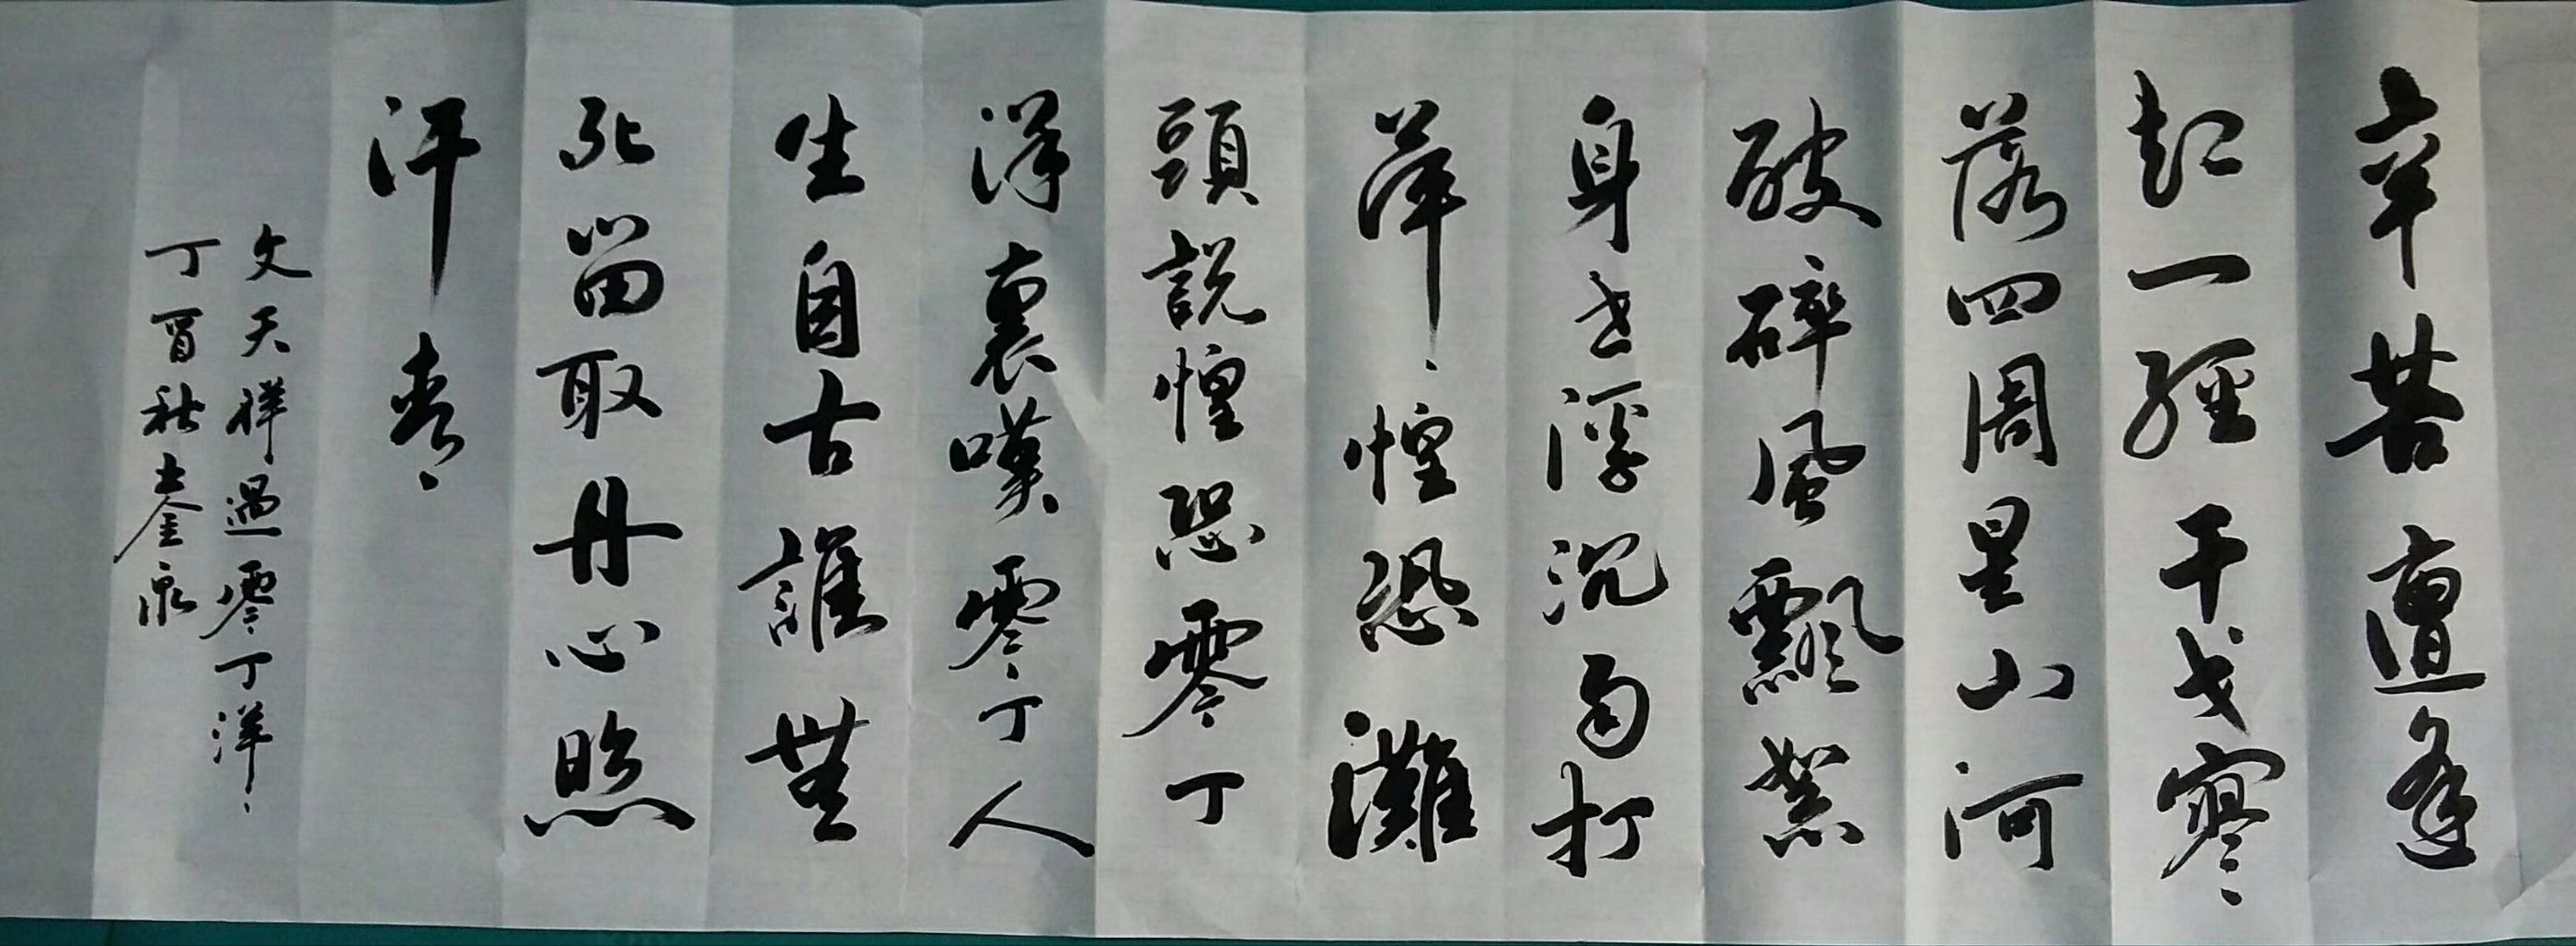 辛苦遭逢
起一經干戈寥
落四周星山河
破碎風飄絮
身世浮沉雨打
萍惶恐灘
頭說惶恐零丁
洋裏嘆零丁人
生自古誰無
死留取丹心照
汗青
文天祥過零丁洋
丁酉秋泉